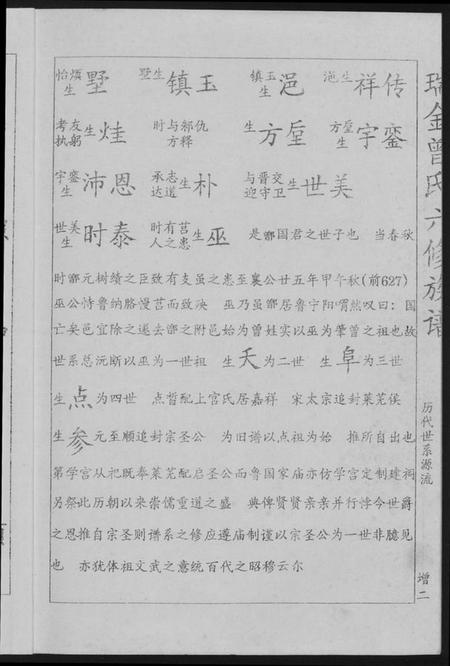 怡煩生 墅 墅生 镇玉 镇玉生 浥 浥生 祥传
考友执躬 生 烓 时与邻仇方释 生 方垕 方垕生 宇銮
宇銮生 沛恩 承志达道 生 朴 与晋交迎守卫 生 世美
世美生 时泰 时有莒人之患 生 巫 是鄫国君之世子也 当春秋
时鄫元树绩之臣致有支虽之患至襄公廿五年甲午秋(前627)
巫公恃鲁纳賂慢莒而致殃 巫乃虽鄫居鲁宁阳喟然叹曰:国
亡矣邑宜除之遂去鄫之附邑始为曾姓实以巫为肇曾之祖也故
世系总沅断以巫为一世祖 生夭为二世 生阜为三世
生点为四世 点晳配上宫氏居嘉祥 宋太宗追封莱芜侯
生参元至顺追封宗圣公 为旧谱以点祖为始 推所自出也
第学宫从祀既奉莱芜配启圣公而鲁国家庙亦仿学宫定制建祠
另祭此历朝以来崇儒重道之盛 典俾贤贤亲亲并行悖今世爵
之恩推自宗圣则谱系之修应遵庙制谨以宗圣公为一世非臆见
也 亦犹体祖文武之意统百代之昭穆云尔
瑞金曾氏六修族谱
历代世系源流
增二